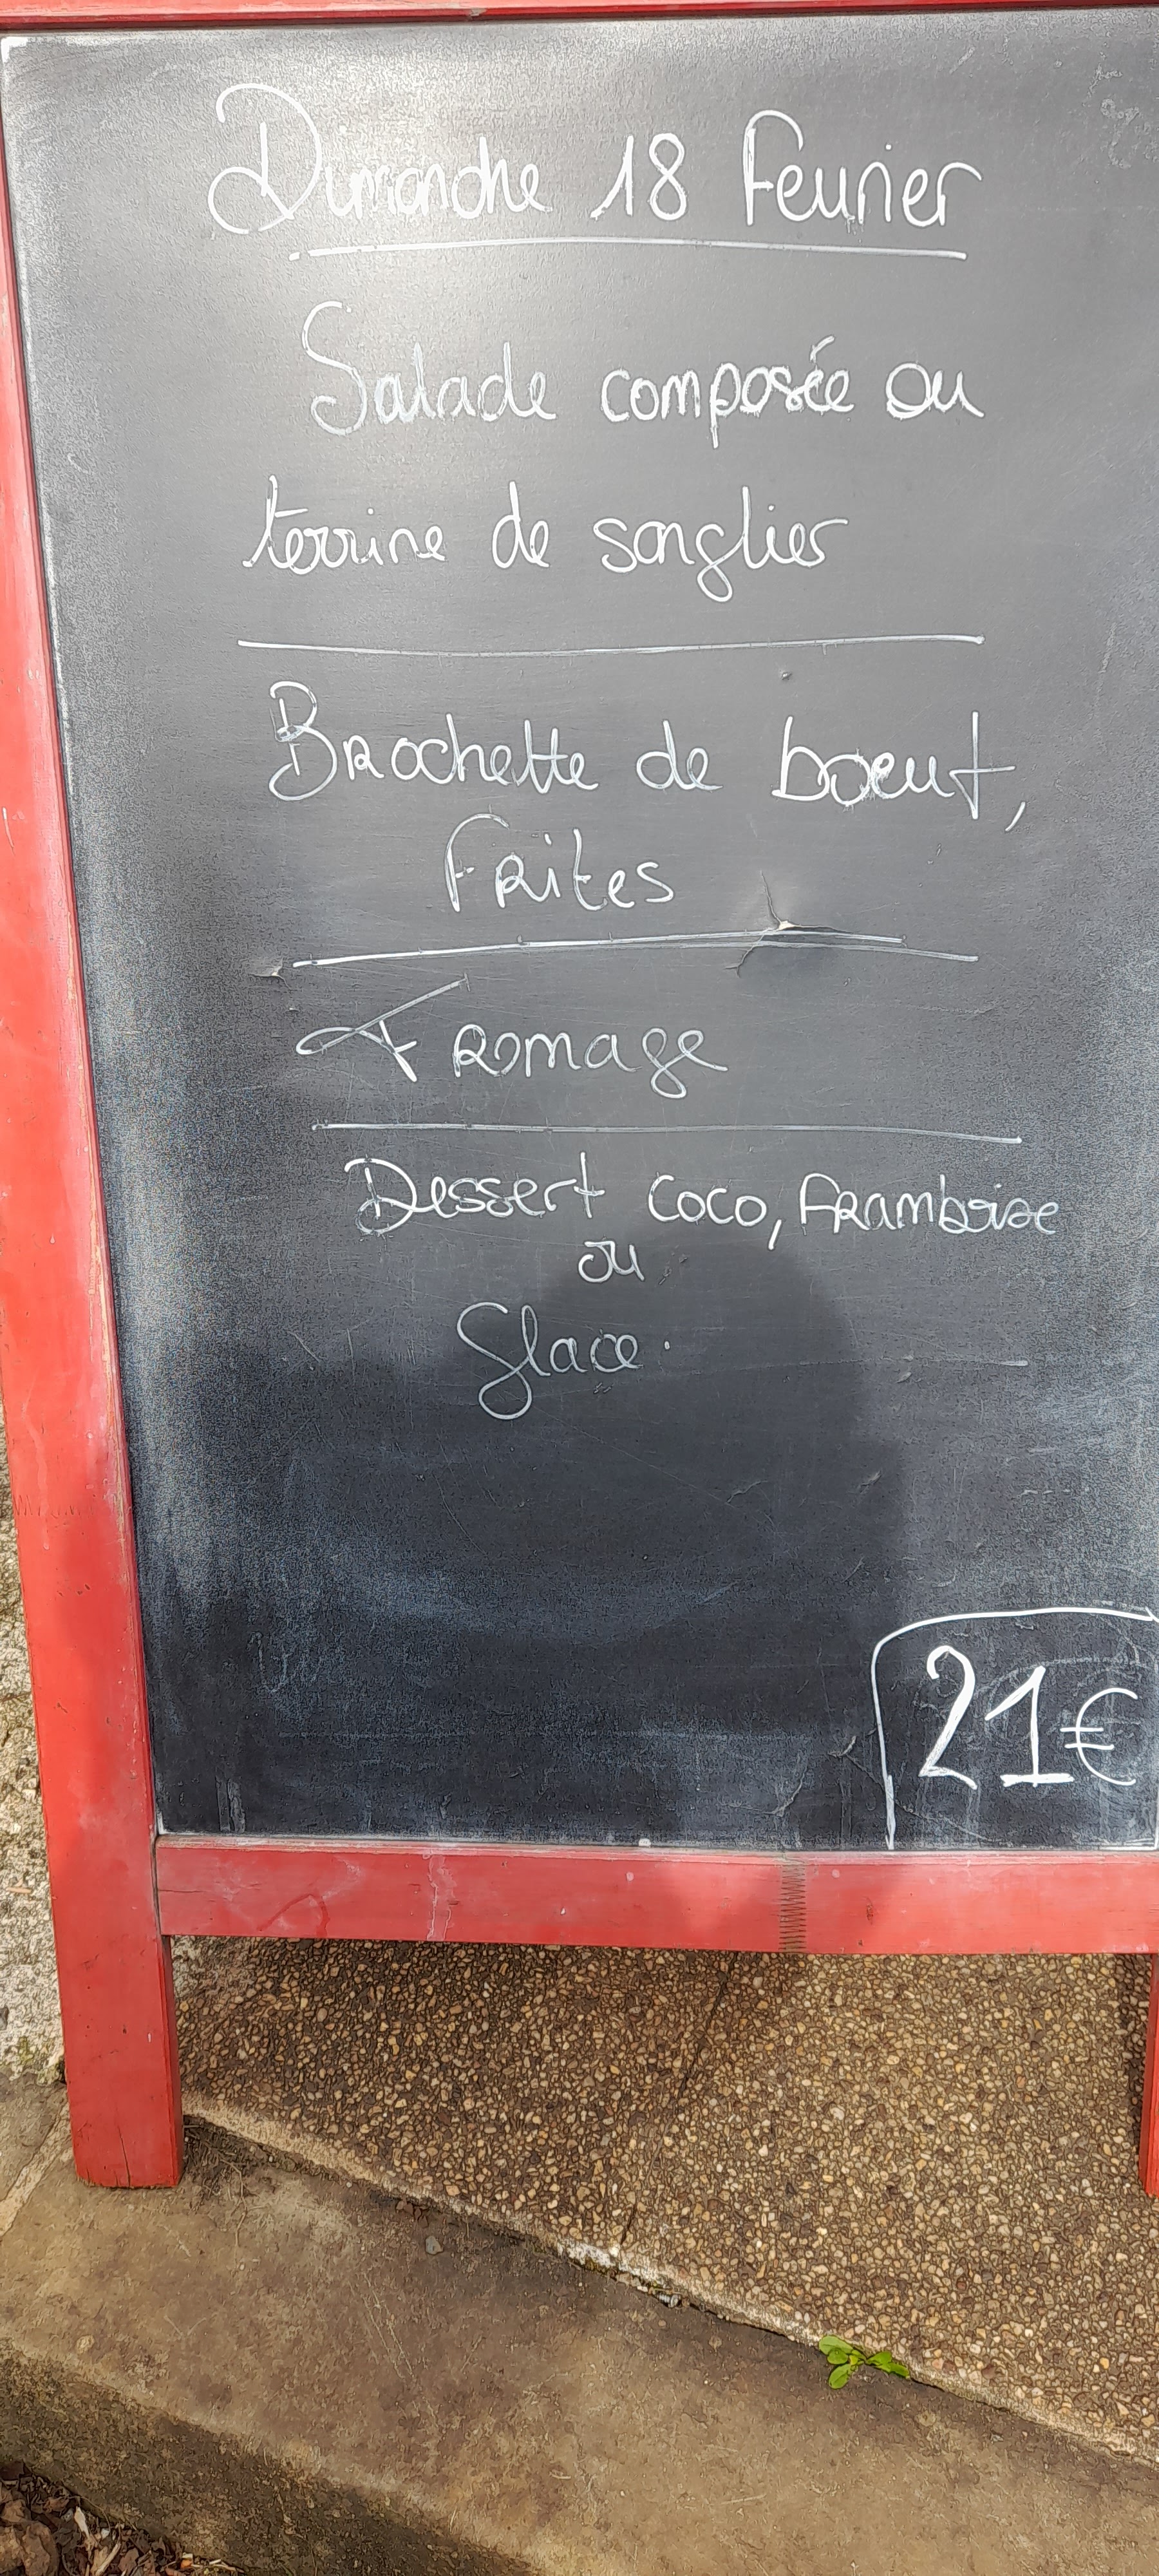 Dimanche 18 Fevrier
Salade composée ou
terrine de sanglier
Brochette de boeuf,
Frites
Fromage
Dessert coco, Framboise
ou
Glace.
21€